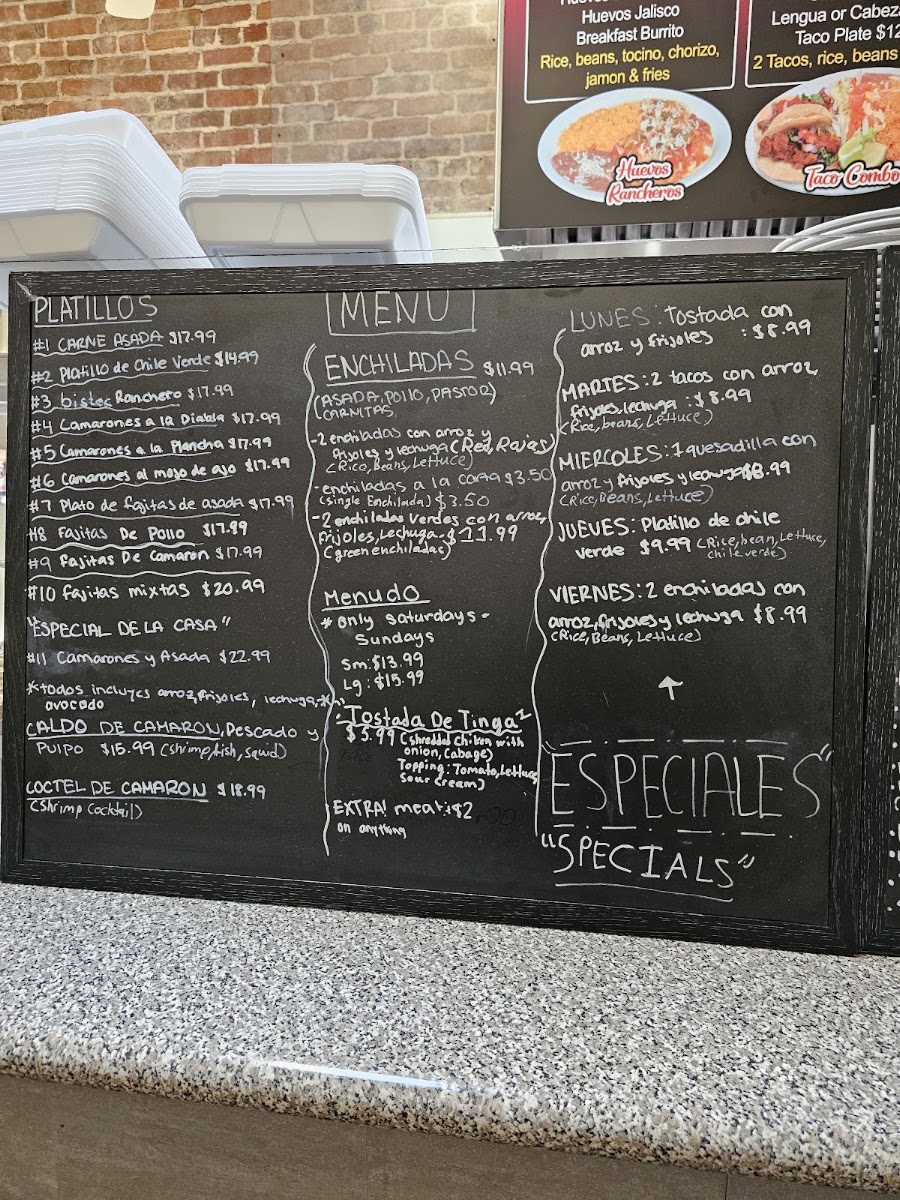 Huevos Jalisco
Breakfast Burrito
Rice, beans, tocino, chorizo,
jamon & fries
Huevos
Rancheros
Lengua or Cabeza
Taco Plate $12
2 Tacos, rice, beans
Taco Combo
PLATILLOS
#1 CARNE ASADA $17.99
#2 Platillo de Chile Verde $14.99
#3 bistec Ranchero $17.99
#4 Camarones a la Diabla $17.99
#5 Camarones a la Plancha $17.99
#6 Camarones al mojo de ajo $17.99
#7 Plato de fajitas de asada $17.99
#8 Fajitas De Pollo $17.99
#9 Fajitas De Camaron $17.99
#10 fajitas mixtas $20.99
"ESPECIAL DE LA CASA"
#11 Camarones y Asada $22.99
*todos incluyes arroz, frijoles, lechuga,*
avocado
CALDO DE CAMARON, Pescado y
PULPO $15.99 (shrimp, fish, squid)
COCTEL DE CAMARON $18.99
(Shrimp Cocktail)
MENU
ENCHILADAS $11.99
(ASADA, POLLO, PASTOR)
CARNITAS,
-2 enchiladas con arroz y
frijoles y lechuga (Red, Rojas)
(Rice, Beans, Lettuce)
-enchiladas a la carta $3.50
(Single Enchilada) $3.50
-2 enchiladas verdes con arroz,
frijoles, lechuga-$11.99
(green enchiladas)
Menudo
* only saturdays-
Sundays
Sm: $13.99
Lg: $15.99
"Tostada De Tinga"
$5.99 (shredded chiken with
onion, cabage)
Topping: Tomato, Lettuce,
Sour Cream)
EXTRA! meat: $2.00
on anything
LUNES: tostada con
arroz y frijoles : $8.99
MARTES: 2 tacos con arroz,
frijoles, lechuga : $8.99
(Rice, beans, Lettuce)
MIERCOLES: 1 quesadilla con
arroz y frijoles y lechuga $8.99
(Rice, beans, Lettuce)
JUEVES: Platillo de chile
verde $9.99 (Rice, bean, Lettuce,
chile verde)
VIERNES: 2 enchiladas con
arroz, frijoles y lechuga $8.99
(Rice, Beans, Lettuce)
"ESPECIALES"
"SPECIALS"